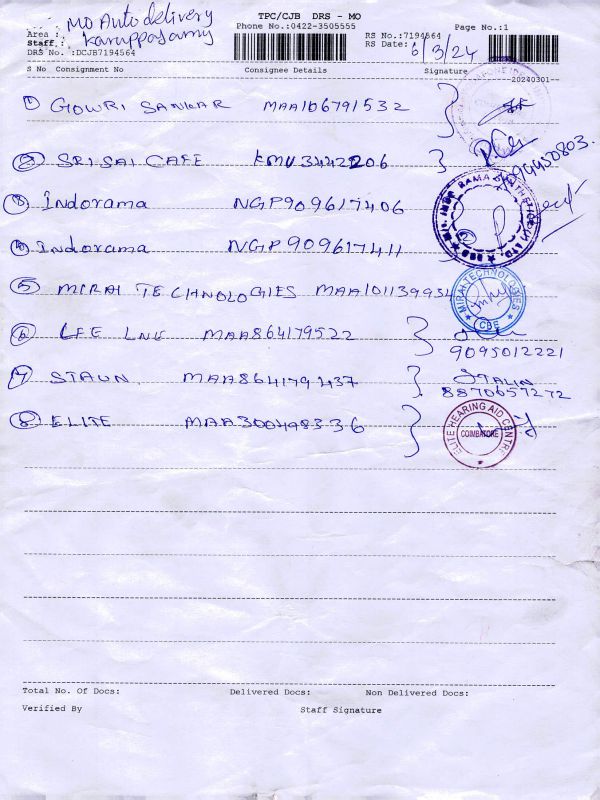 MO Auto delivery
Karuppasamy
TPC/CJB DRS - MO
Phone No.:0422-3505555
Page No.:1
Area :
Staff :
DRS No. :DCJB7194564
RS No.:7194564
RS Date: 6/3/24
S No Consignment No Consignee Details Signature
20240301
1 GOWRI SANKAR MAA106791532
2 SRI SAI CAFE KMU3442206
99950803.
3 Indorama NGP909617406
4 Indorama NGP909617411
5 MIRAI TECHNOLOGIES MAA101139934
MIRAI TECHNOLOGIES
CBE
6 LEE LNU MAA864179522
9095012221
7 STALIN MAA864179437 STALIN
8870657272
8 ELITE MAA300498336
ELITE HEARING AID CENTRE
COIMBATORE
Total No. Of Docs: Delivered Docs: Non Delivered Docs:
Verified By Staff Signature